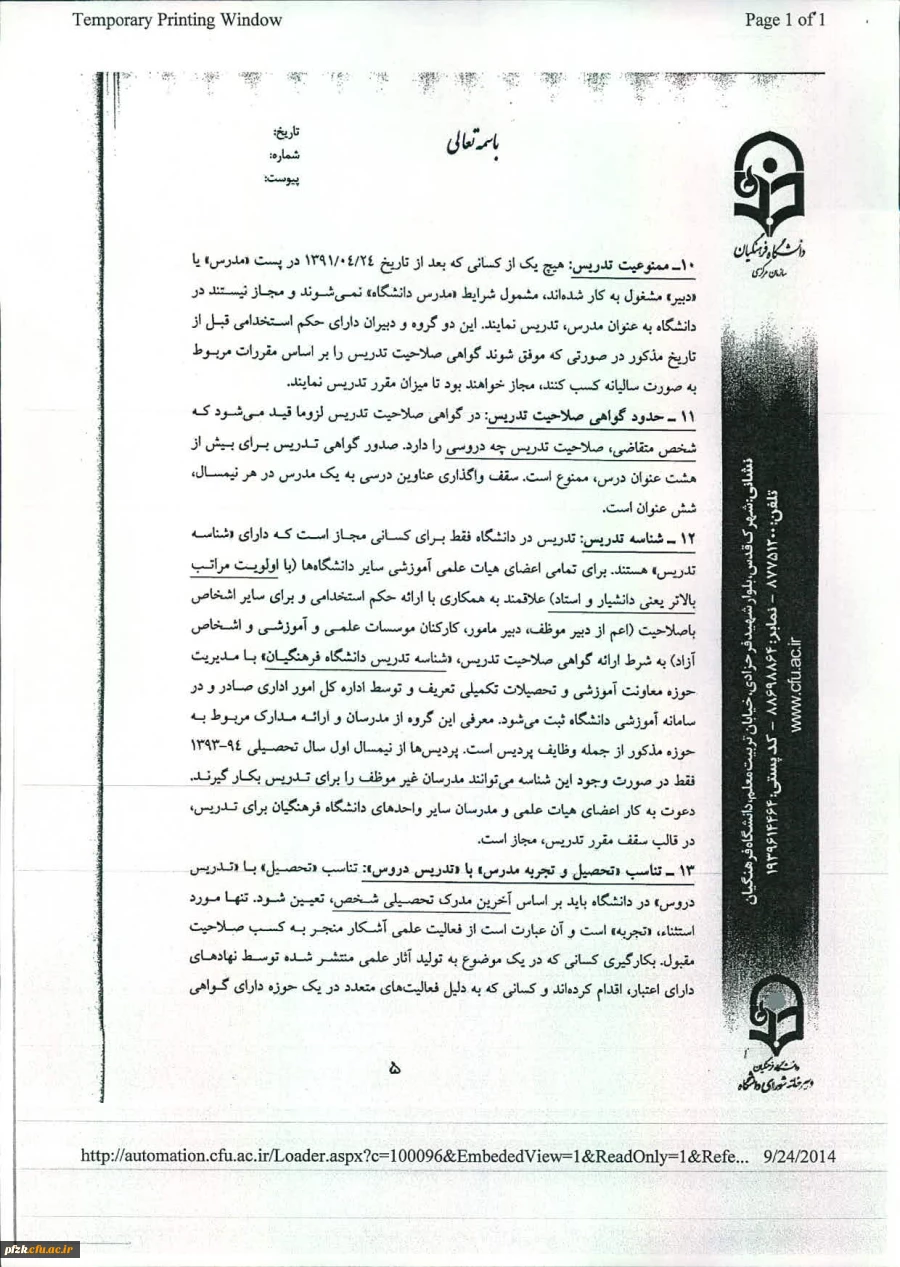 Temporary Printing Window
Page 1 of 1
باسمه تعالی
تاریخ:
شماره:
پیوست:
دانشگاه فرهنگیان
سازمان مرکزی
۱۰ـ ممنوعیت تدریس: هیچ یک از کسانی که بعد از تاریخ ۱۳۹۱/۰٤/۲٤ در پست «مدرس» یا
«دبیر» مشغول به کار شده‌اند، مشمول شرایط «مدرس دانشگاه» نمی‌شوند و مجاز نیستند در
دانشگاه به عنوان مدرس، تدریس نمایند. این دو گروه و دبیران دارای حکم استخدامی قبل از
تاریخ مذکور در صورتی که موفق شوند گواهی صلاحیت تدریس را بر اساس مقررات مربوط
به صورت سالیانه کسب کنند، مجاز خواهند بود تا میزان مقرر تدریس نمایند.
۱۱ ـ حدود گواهی صلاحیت تدریس: در گواهی صلاحیت تدریس لزوما قید می‌شود که
شخص متقاضی، صلاحیت تدریس چه دروسی را دارد. صدور گواهی تدریس برای بیش از
هشت عنوان درس، ممنوع است. سقف واگذاری عناوین درسی به یک مدرس در هر نیمسال،
شش عنوان است.
۱۲ ـ شناسه تدریس: تدریس در دانشگاه فقط برای کسانی مجاز است که دارای «شناسه
تدریس» هستند. برای تمامی اعضای هیات علمی آموزشی سایر دانشگاه‌ها (با اولویت مراتب
بالاتر یعنی دانشیار و استاد) علاقمند به همکاری با ارائه حکم استخدامی و برای سایر اشخاص
باصلاحیت (اعم از دبیر موظف، دبیر مامور، کارکنان موسسات علمی و آموزشی و اشخاص
آزاد) به شرط ارائه گواهی صلاحیت تدریس، «شناسه تدریس دانشگاه فرهنگیان» با مدیریت
حوزه معاونت آموزشی و تحصیلات تکمیلی تعریف و توسط اداره کل امور اداری صادر و در
سامانه آموزشی دانشگاه ثبت می‌شود. معرفی این گروه از مدرسان و ارائه مدارک مربوط به
حوزه مذکور از جمله وظایف پردیس است. پردیس‌ها از نیمسال اول سال تحصیلی ۹٤-۱۳۹۳
فقط در صورت وجود این شناسه می‌توانند مدرسان غیر موظف را برای تدریس بکار گیرند.
دعوت به کار اعضای هیات علمی و مدرسان سایر واحدهای دانشگاه فرهنگیان برای تدریس،
در قالب سقف مقرر تدریس، مجاز است.
۱۳ ـ تناسب «تحصیل و تجربه مدرس» با «تدریس دروس»: تناسب «تحصیل» با «تدریس
دروس» در دانشگاه باید بر اساس آخرین مدرک تحصیلی شخص، تعیین شود. تنها مورد
استثناء، «تجربه» است و آن عبارت است از فعالیت علمی آشکار منجر به کسب صلاحیت
مقبول. بکارگیری کسانی که در یک موضوع به تولید آثار علمی منتشر شده توسط نهادهای
دارای اعتبار، اقدام کرده‌اند و کسانی که به دلیل فعالیت‌های متعدد در یک حوزه دارای گواهی
۵
نشانی:شهرک قدس،بلوار شهید فرحزادی،خیابان تربیت معلم،دانشگاه فرهنگیان
تلفن:۸۷۷۵۱۲۰۰ – نمابر:۸۸۶۹۸۸۶۴ – کد پستی:۱۹۳۹۶۱۴۴۶۴
www.cfu.ac.ir
دانشگاه فرهنگیان
دبیرخانه شورای دانشگاه
http://automation.cfu.ac.ir/Loader.aspx?c=100096&EmbededView=1&ReadOnly=1&Refe... 9/24/2014
pfzk.cfu.ac.ir